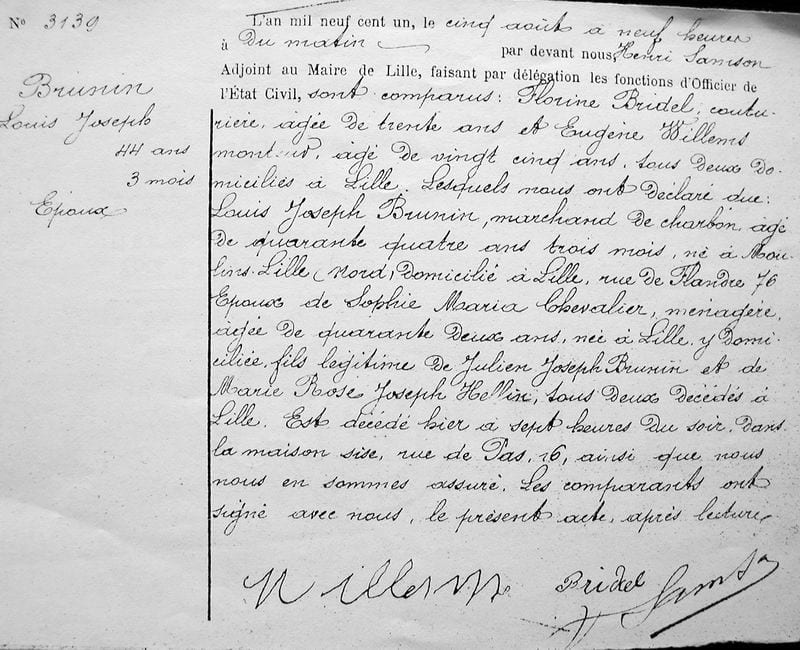 N° 3139
Brunin
Louis Joseph
44 ans
3 mois
Epoux
L'an mil neuf cent un, le cinq août à neuf heures
à Du matin par devant nous, Henri Samson
Adjoint au Maire de Lille, faisant par délégation les fonctions d'Officier de
l'État Civil, sont comparus : Florine Bridel, coutu-
rière, âgée de trente ans et Eugène Willems
monteur, âgé de vingt cinq ans, tous deux do-
miciliés à Lille. Lesquels nous ont déclaré que :
Louis Joseph Brunin, marchand de charbon, âgé
de quarante quatre ans trois mois, né à Mou-
lins-Lille (Nord) Domicilié à Lille, rue de Flandre 76
Epoux de Sophie Maria Chevalier, ménagère,
âgée de quarante deux ans, née à Lille, y domi-
ciliée, fils légitime de Julien Joseph Brunin et de
Marie Rose Joseph Hellin, tous deux décédés à
Lille. Est décédé hier à sept heures du soir, dans
la maison sise, rue de Pas, 16, ainsi que nous
nous en sommes assuré. Les comparants ont
signé avec nous, le présent acte, après lecture
Willems Bridel Samson